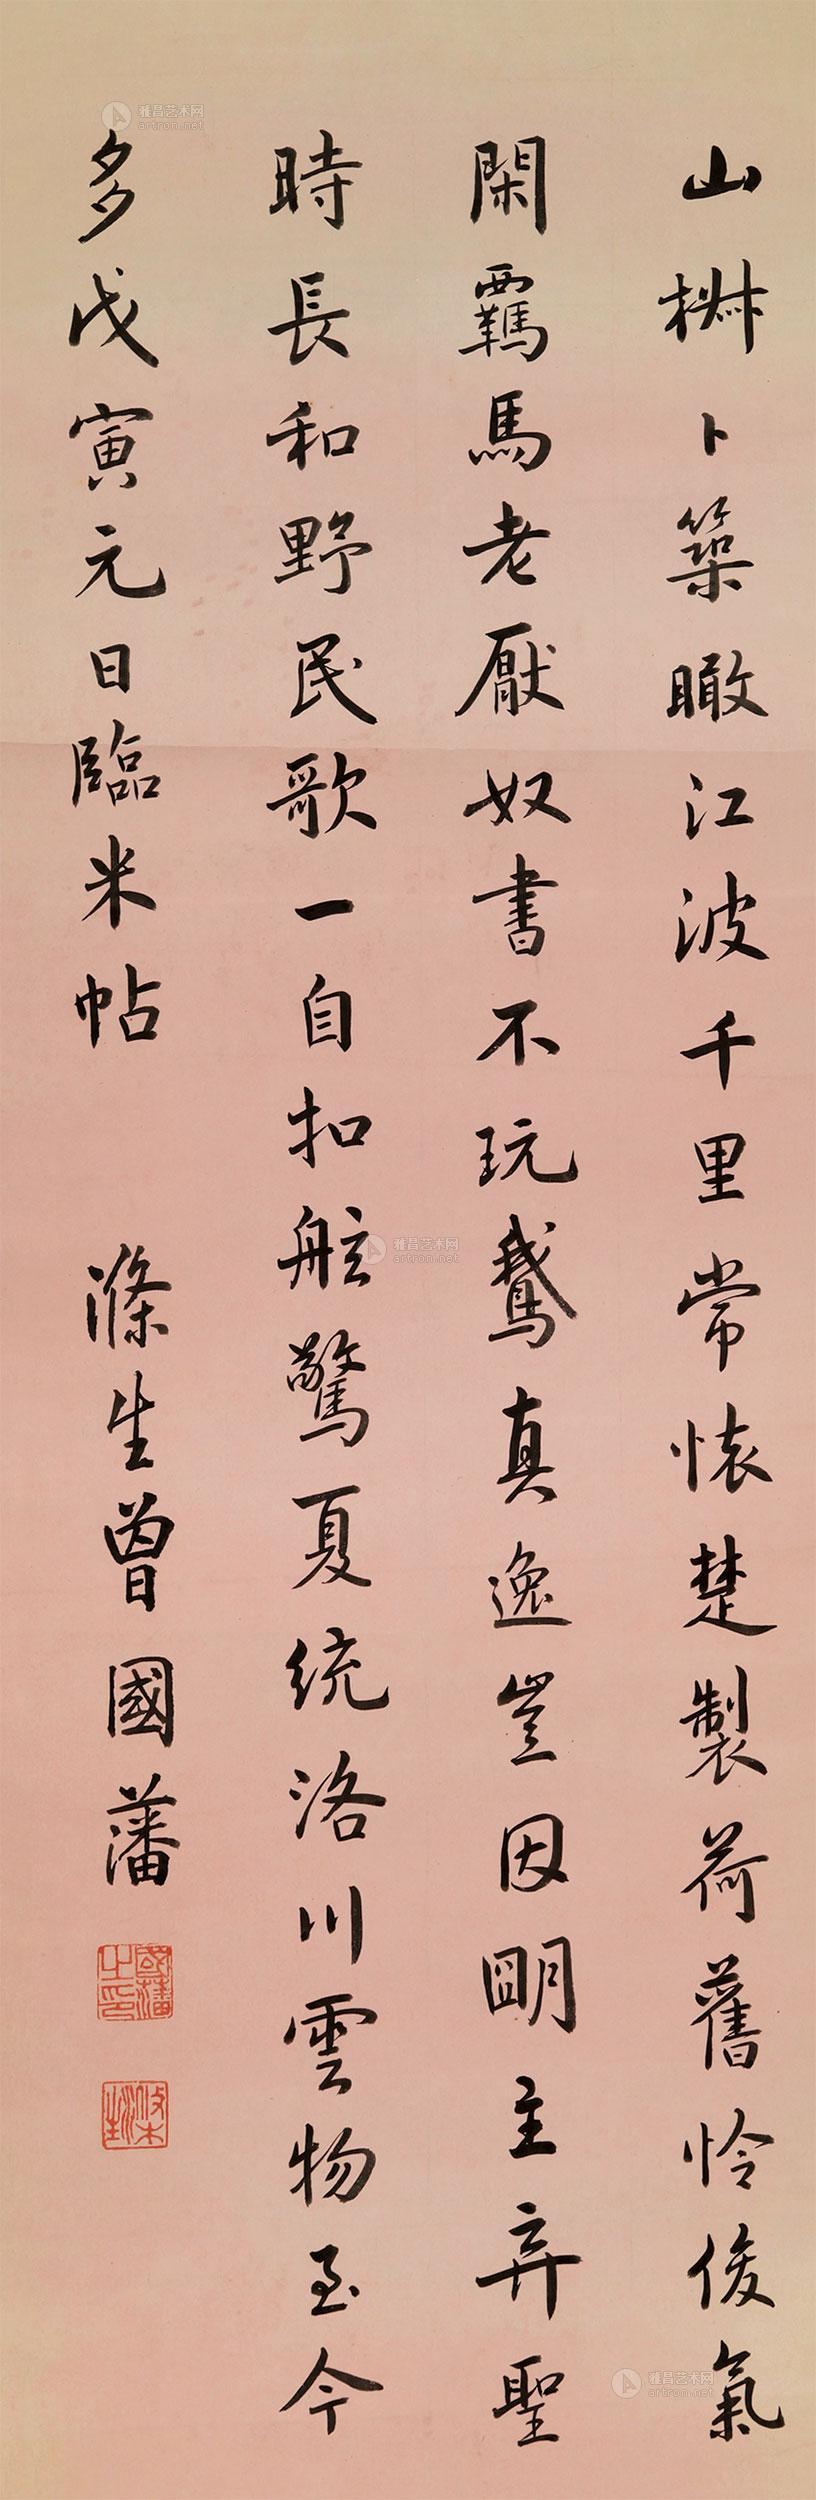 山椒卜築瞰江波千里常懐楚製荷舊怜俊氣
閑羈馬老厭奴書不玩鵞真逸豈因明主弃聖
時長和野民歌一自扣舷驚夏統洛川雲物至今
多戊寅元日臨米帖 滌生曾國藩
國藩之印
滌生
雅昌艺术网
artron.net
雅昌艺术网
artron.net
雅昌艺术网
artron.net